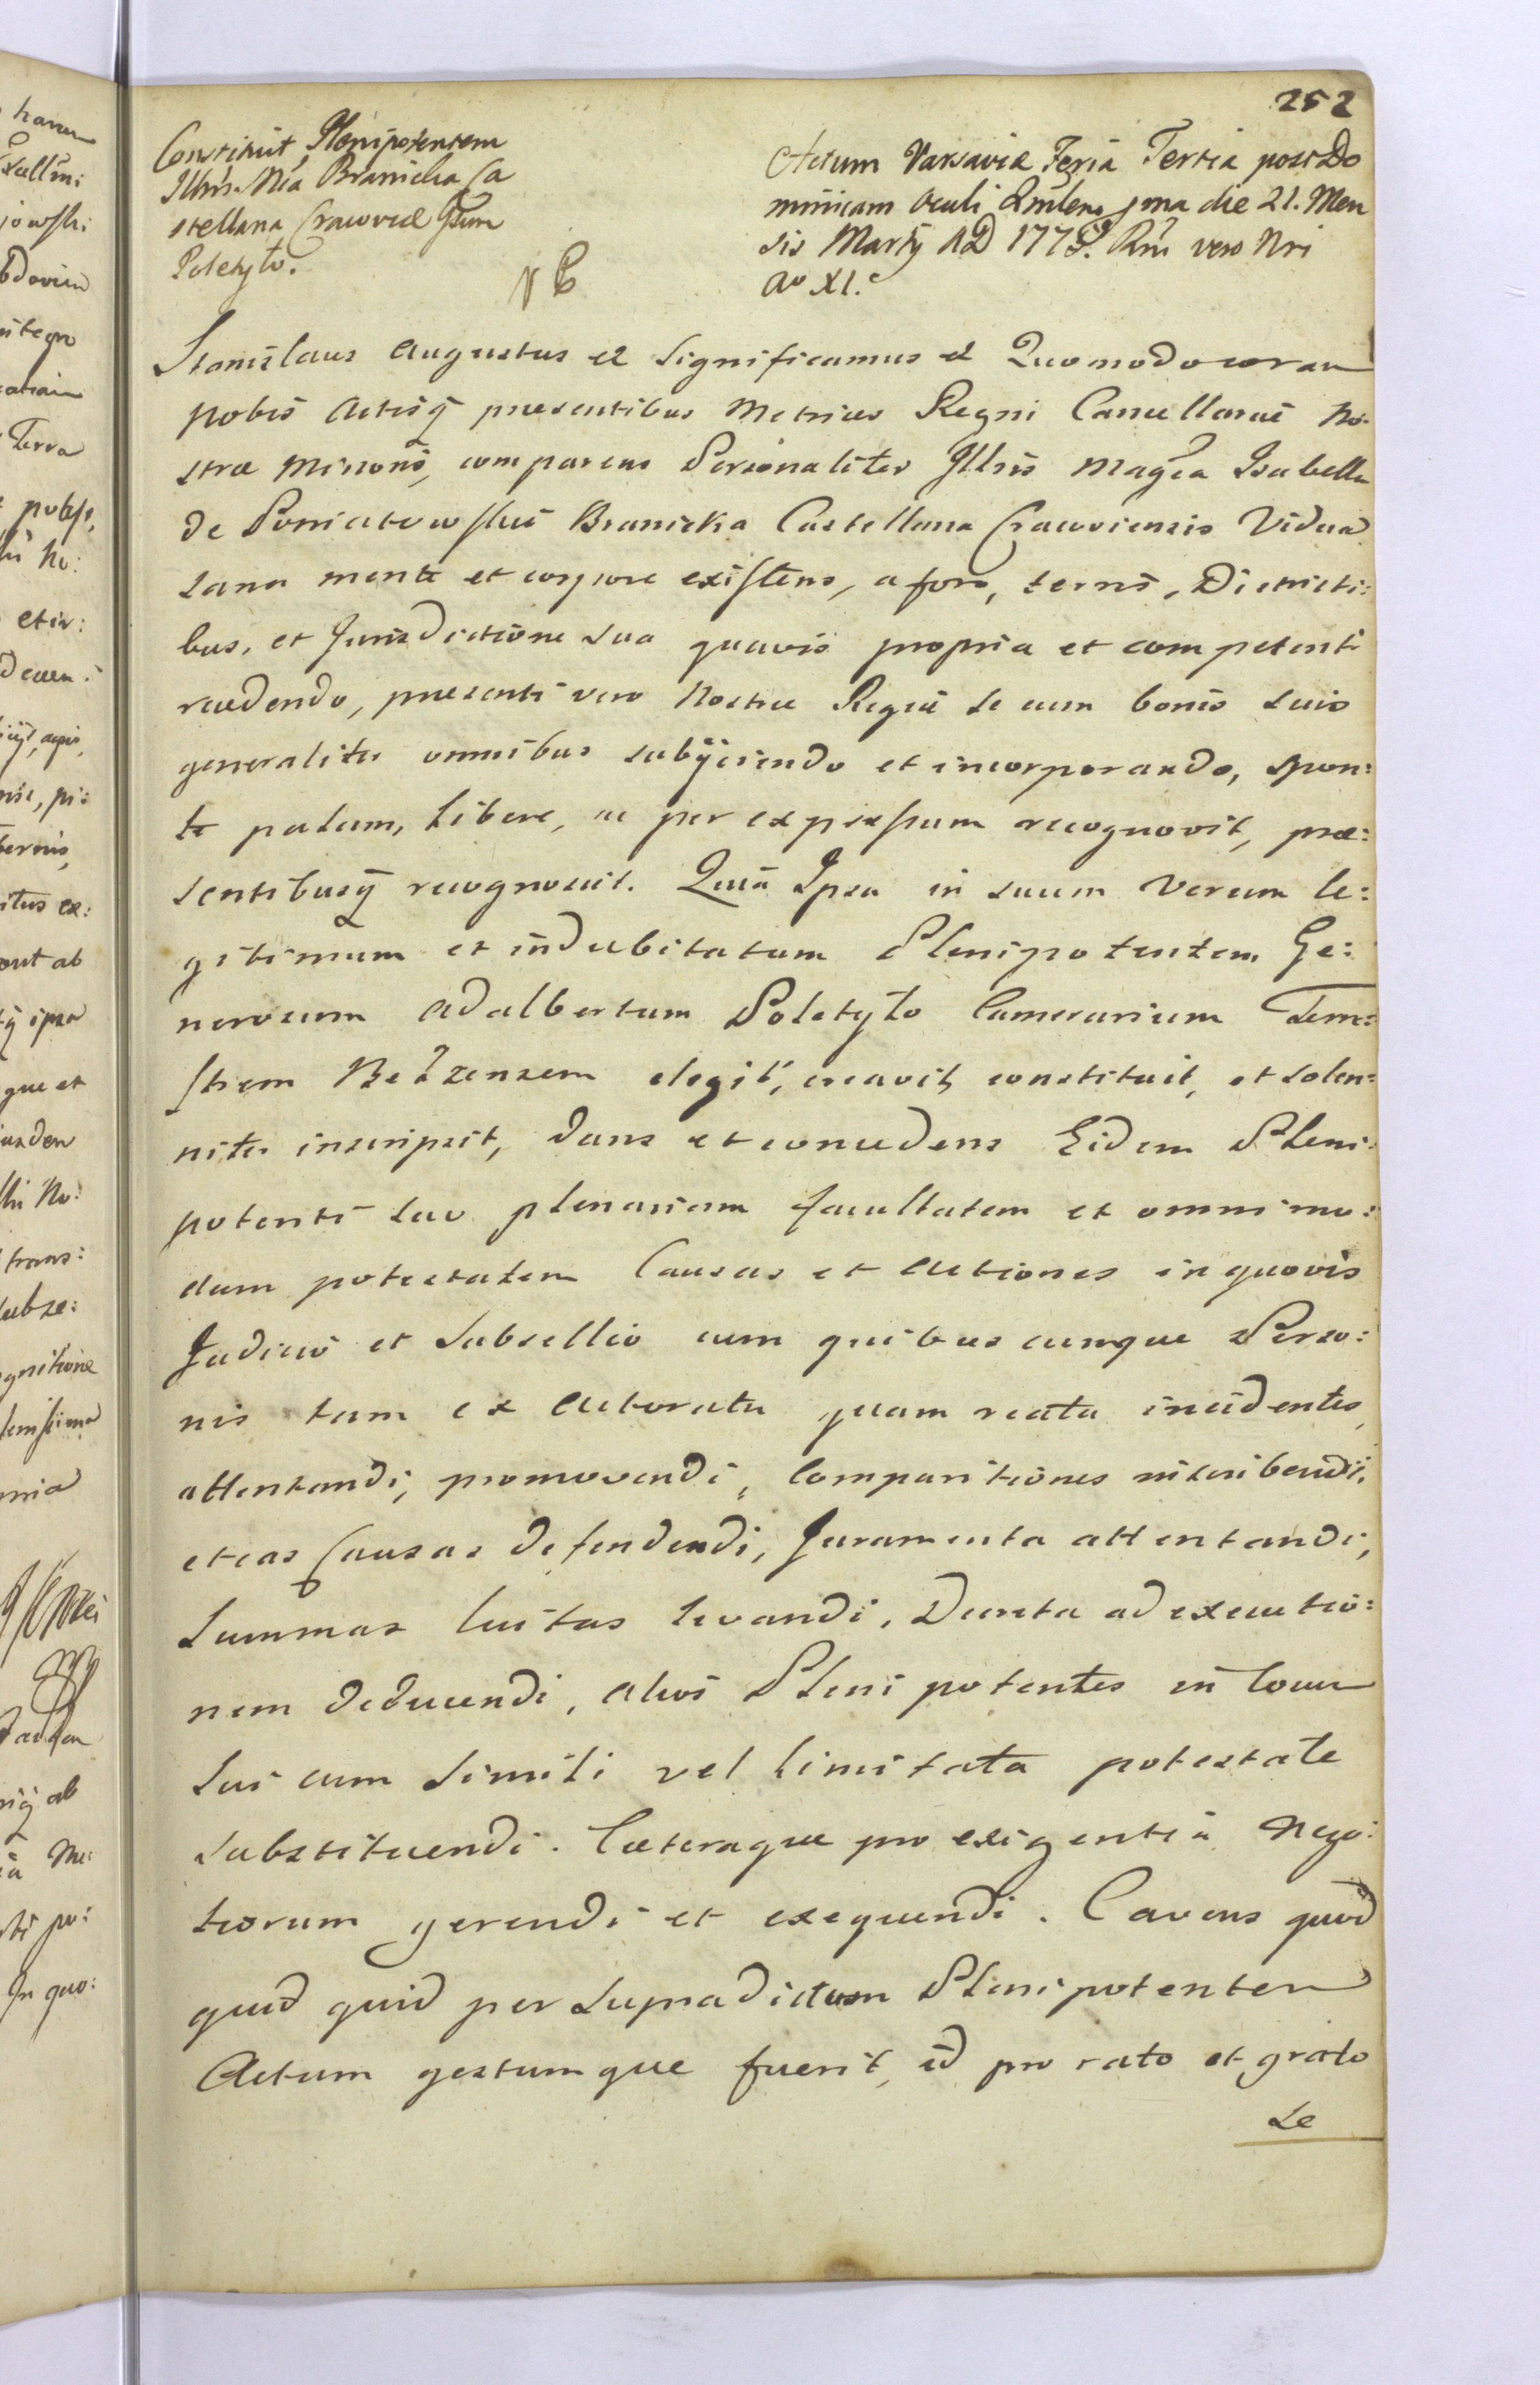 252
Constituit Plenipotentem
Illris Mca Branicka Ca
stellana Cracoviæ Gsum
Poletyło.
NB
Actum Varsaviæ Feria Tertia post Do
minicam Oculi Qudlenã gma die 21. Men
sis Martÿ AD 1775. Rni vero Nri
Aº XI.
Stanislaus Augustus et Significamus et Quomodo coram
Nobis Actisq præsentibus Metrices Regni Cancellariæ No:
stræ Minoris, comparens Personaliter Illris Magca Isabella
de Poniatowskie Branicka Castellana Cracoviensis Vidua
sana mente et corpore existens, a foro, terris, Districti:
bus, et Jurisdictione sua quavis propria et competenti
recedendo, presenti vero Nostræ Regiæ se cum bonis suis
generaliter omnibus subÿciendo et incorporando, spon:
te palam, libere, ac per expressum recognovit, præ:
sentibusq recognoscit. Quia Ipsa in suum verum le:
gitimum et indubitatum Plenipotentem Ge:
nerosum Adalbertum Poletyło Camerarium Terre:
strem Bełzensem elegit, creavit, constituit, et solen:
niter inscripsit, dans et concedens Eidem Pleni:
potenti suo plenariam facultatem et omnimo:
dam potestatem Causas et Actiones in quovis
Judicio et Subsellio cum quibuscumque Perso:
nis tam ex Actoratu quam reatu incidentes
attentandi, promovendi, Comparitiones inscribendi,
et eas Causas defendendi, Juramenta attentandi,
Summas luitas levandi, Decreta ad executio:
nem deducendi, alios Plenipotentes in locum
sui cum simili vel limitata potestate
substituendi. Cæteraque pro exigentia Nego:
tiorum gerendi et exequendi. Cavens quod
quid quid per supradictum Plenipotentem
Actum gestumque fuerit, id pro rato et grato
se